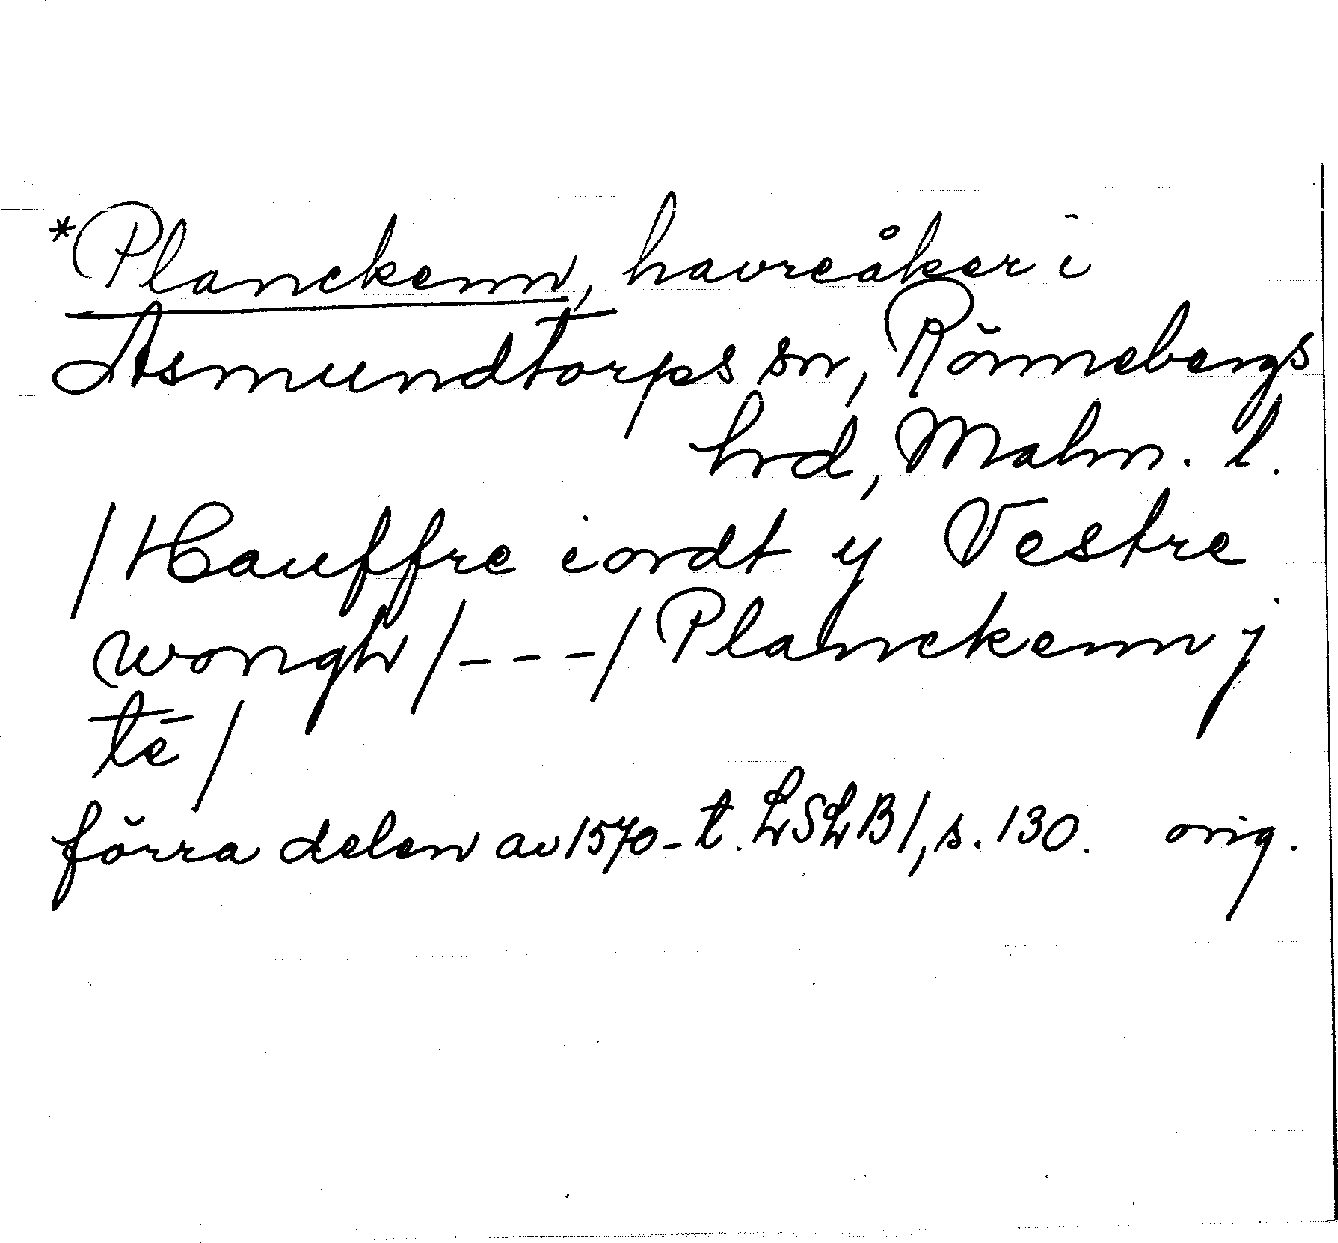 *Planckenn, havreåker i
Asmundtorps sn, Rönnebergs
hrd, Malm. l.
/Hauffre iordt y Vestre
wongh/---/Planckenn j
tē/
förra delen av 1570-t. LSLB1, s. 130. orig.